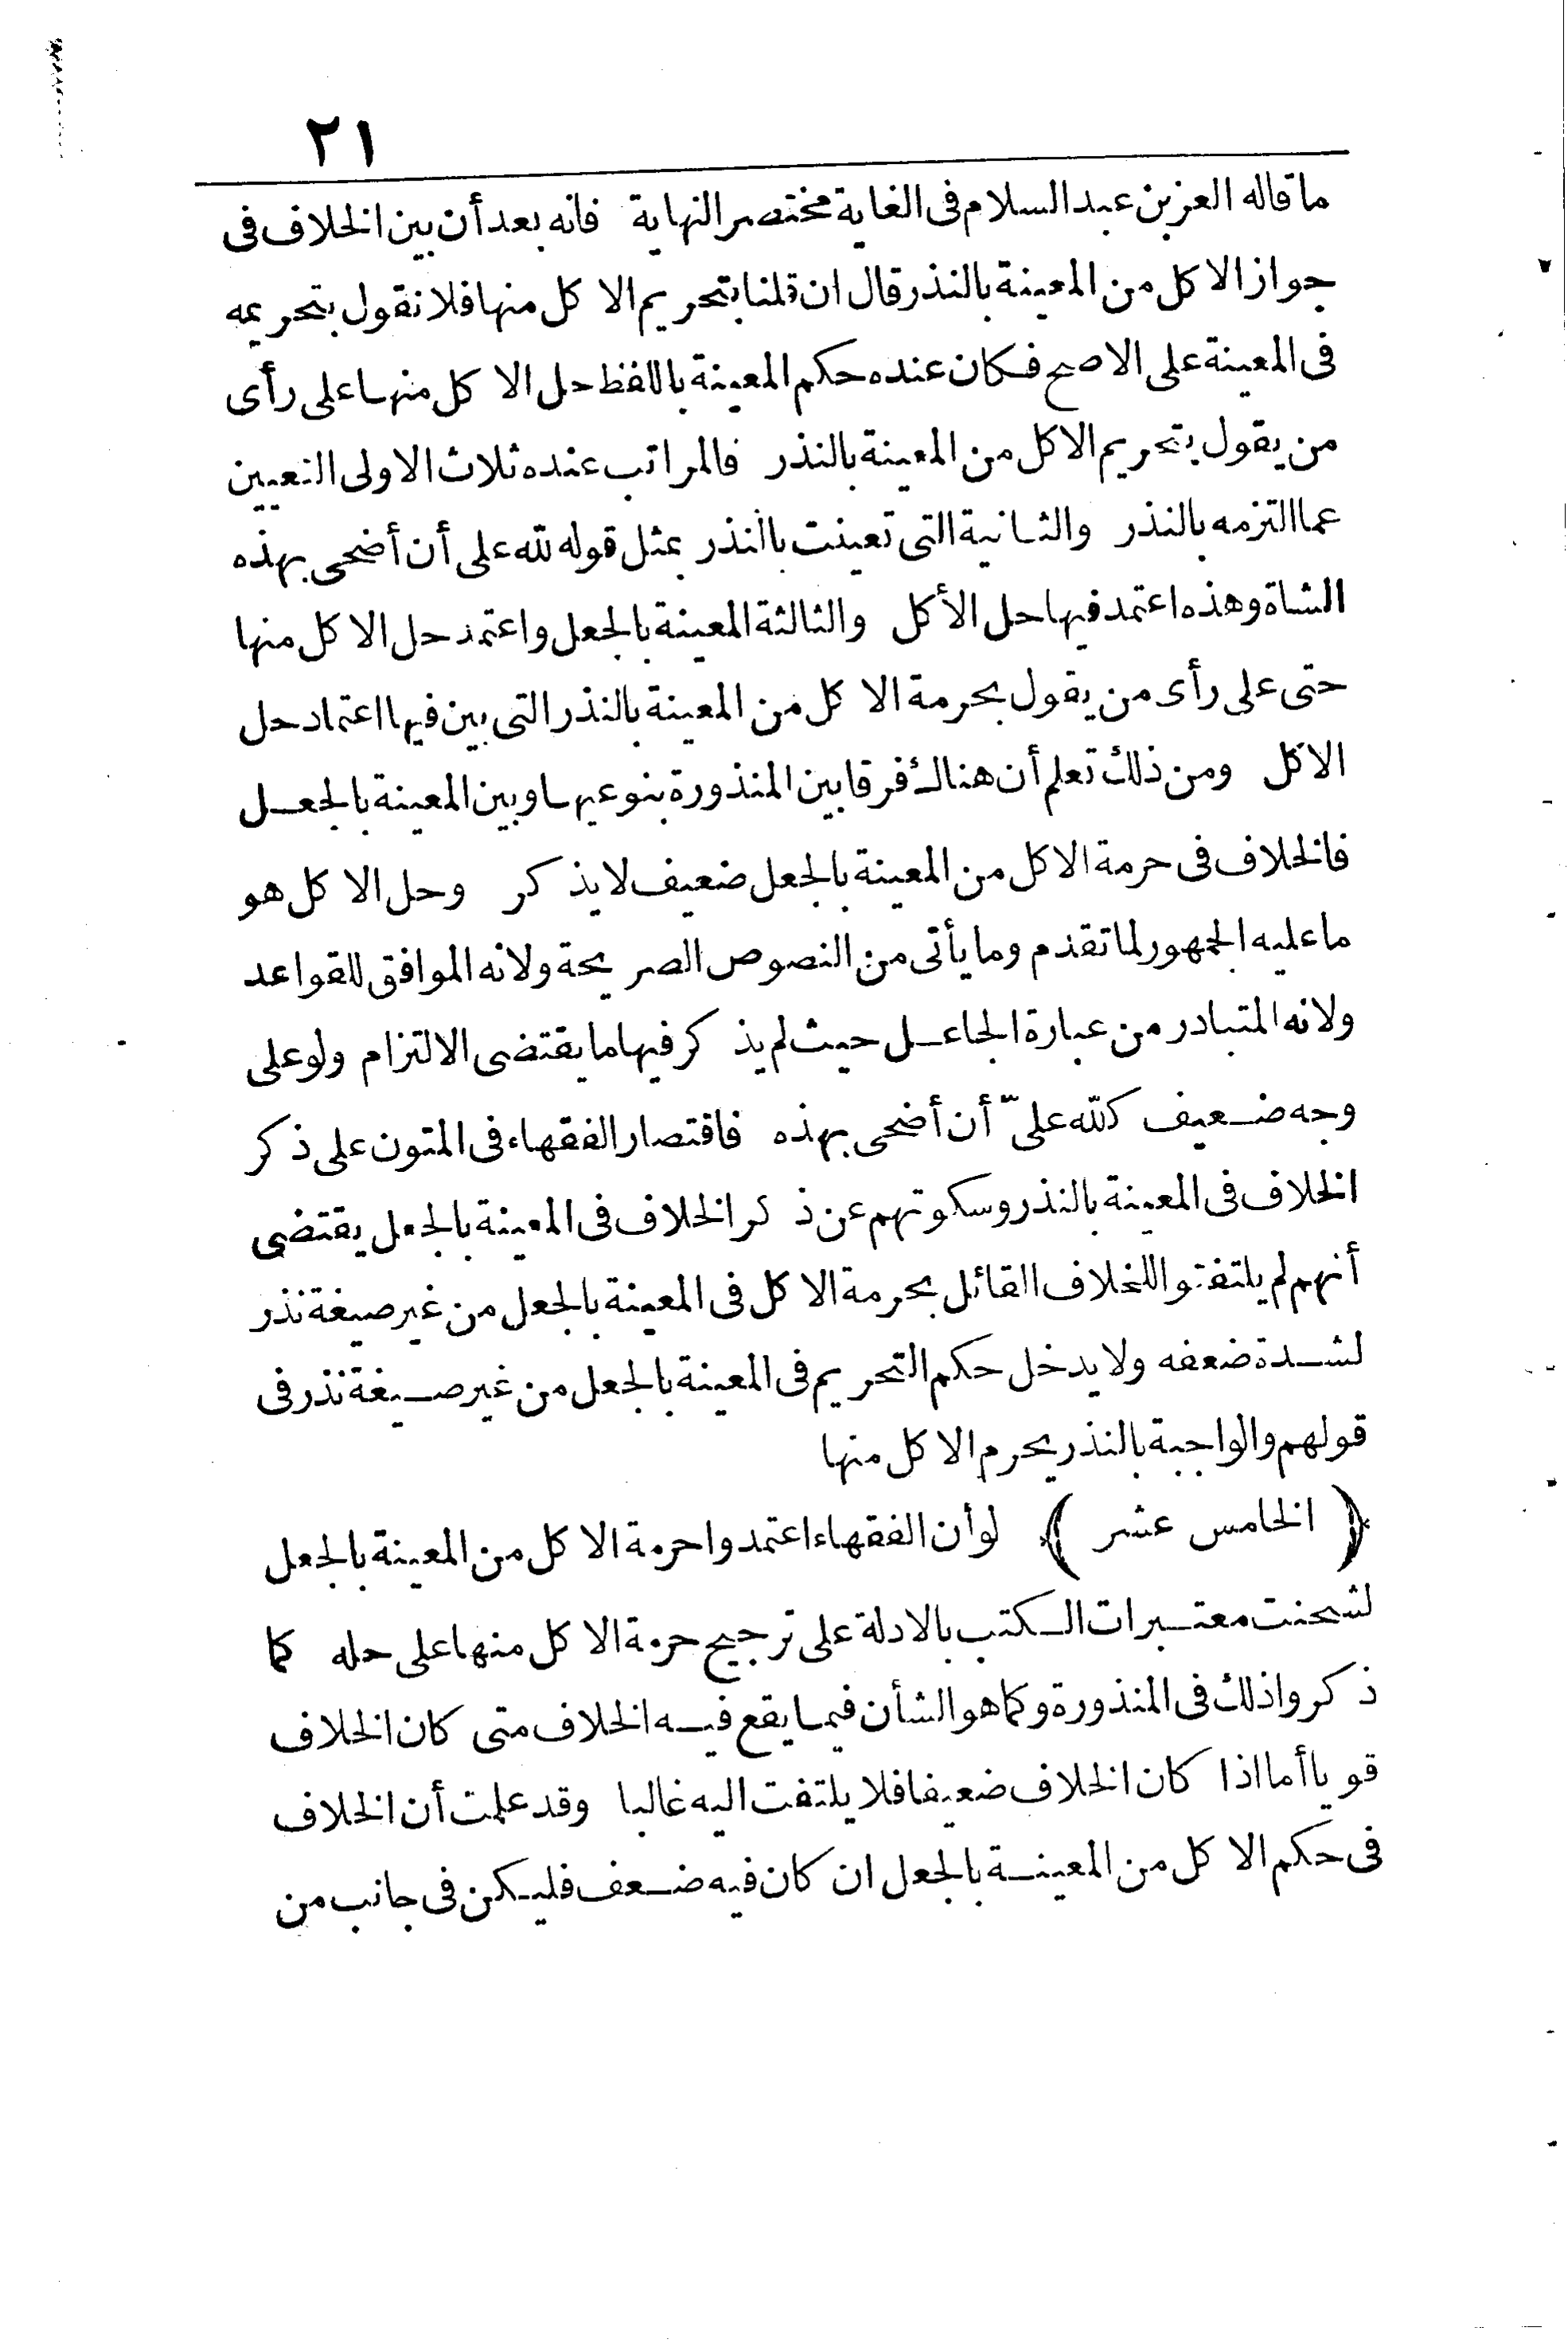 ٢١
ما قاله العز بن عبد السلام فى الغاية مختصر النهاية فانه بعد أن بين الخلاف فى
جواز الاكل من المعينة بالنذر قال ان قلنا بتحريم الاكل منها فلا نقول بتحريمه
فى المعينة على الاصح فكان عنده حكم المعينة باللفظ حل الاكل منها على رأى
من يقول بتحريم الاكل من المعينة بالنذر فالمراتب عنده ثلاث الاولى التعيين
عما التزمه بالنذر والثانية التى تعينت بالنذر بمثل قوله لله على أن أضحى بهذه
الشاة وهذه اعتمد فيها حل الأكل والثالثة المعينة بالجعل واعتمد حل الاكل منها
حتى على رأى من يقول بحرمة الاكل من المعينة بالنذر التى بين فيها اعتماد حل
الاكل ومن ذلك تعلم أن هناك فرقا بين المنذورة بنوعيها وبين المعينة بالجعل
فالخلاف فى حرمة الاكل من المعينة بالجعل ضعيف لا يذكر وحل الاكل هو
ما عليه الجمهور لما تقدم وما يأتى من النصوص الصريحة ولانه الموافق للقواعد
ولانه المتبادر من عبارة الجاعل حيث لم يذكر فيها ما يقتضى الالتزام ولو على
وجه ضعيف كلله علىّ أن أضحى بهذه فاقتصار الفقهاء فى المتون على ذكر
الخلاف فى المعينة بالنذر وسكوتهم عن ذكر الخلاف فى المعينة بالجعل يقتضى
أنهم لم يلتفتوا للخلاف القائل بحرمة الاكل فى المعينة بالجعل من غير صيغة نذر
لشدة ضعفه ولا يدخل حكم التحريم فى المعينة بالجعل من غير صيغة نذر فى
قولهم والواجبة بالنذر يحرم الاكل منها
﴿ الخامس عشر ﴾ لو أن الفقهاء اعتمدوا حرمة الاكل من المعينة بالجعل
لشحنت معتبرات الكتب بالادلة على ترجيح حرمة الاكل منها على حله كما
ذكروا ذلك فى المنذورة وكما هو الشأن فيما يقع فيه الخلاف متى كان الخلاف
قويا أما اذا كان الخلاف ضعيفا فلا يلتفت اليه غالبا وقد علمت أن الخلاف
فى حكم الاكل من المعينة بالجعل ان كان فيه ضعف فليكن فى جانب من